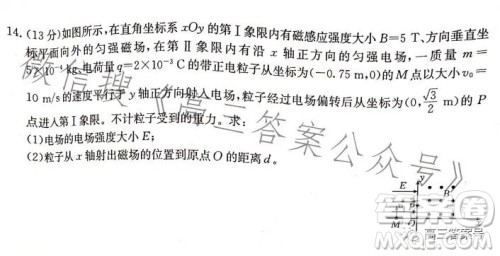 14.(13分)如图所示,在直角坐标系xOy的第Ⅰ象限内有磁感应强度大小B=5 T、方向垂直坐
标平面向外的匀强磁场,在第Ⅱ象限内有沿x轴正方向的匀强电场,一质量m=
5×10⁻⁴ kg、电荷量q=2×10⁻³ C的带正电粒子从坐标为(-0.75 m,0)的M点以大小v₀=
10 m/s的速度平行于y轴正方向射入电场,粒子经过电场偏转后从坐标为(0,√3/2 m)的P
点进入第Ⅰ象限。不计粒子受到的重力。求:
(1)电场的电场强度大小E;
(2)粒子从x轴射出磁场的位置到原点O的距离d。
y
E B
P
M O
微信搜《高三答案公众号》
答案圈
高三答案号
MXQE.COM